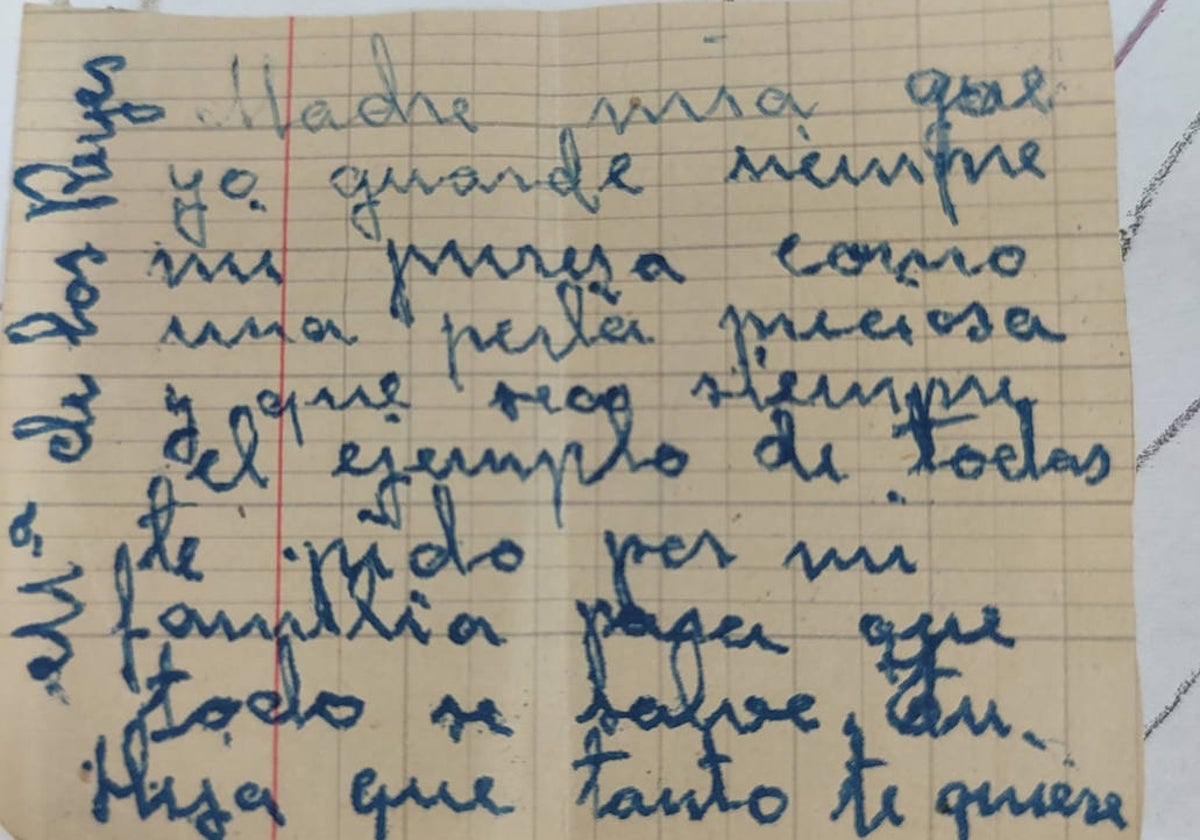 Madre mia que
yo guarde siempre
mi pureza como
una perla preciosa
y que sea siempre
el ejemplo de todas
te pido por mi
familia para que
todo se salve. Tu
Hija que tanto te quiere
Mª de los Reyes